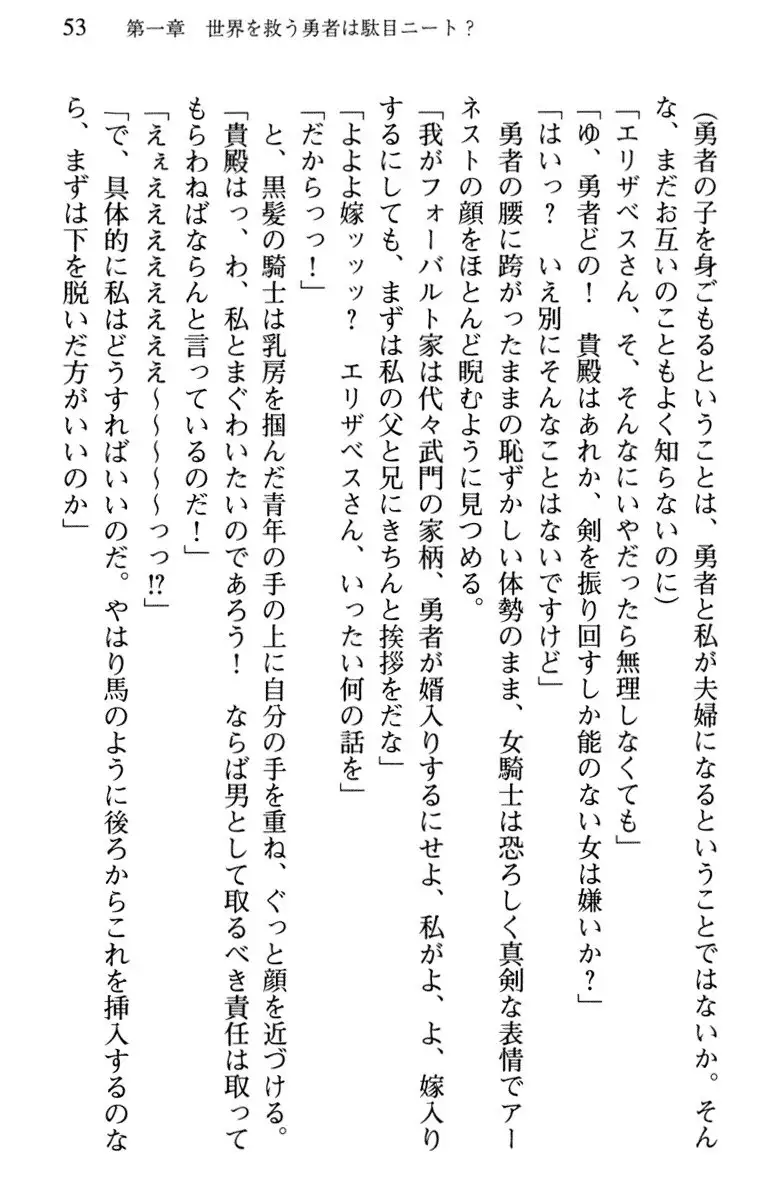 53　第一章　世界を救う勇者は駄目ニート？
（勇者の子を身ごもるということは、勇者と私が夫婦になるということではないか。そん
な、まだお互いのこともよく知らないのに）
「エリザベスさん、そ、そんなにいやだったら無理しなくても」
「ゆ、勇者どの！　貴殿はあれか、剣を振り回すしか能のない女は嫌いか？」
「はいっ？　いえ別にそんなことはないですけど」
　勇者の腰に跨がったままの恥ずかしい体勢のまま、女騎士は恐ろしく真剣な表情でアー
ネストの顔をほとんど睨むように見つめる。
「我がフォーバルト家は代々武門の家柄、勇者が婿入りするにせよ、私がよ、よ、嫁入り
するにしても、まずは私の父と兄にきちんと挨拶をだな」
「よよよ嫁ッッッ？　エリザベスさん、いったい何の話を」
「だからっっ！」
　と、黒髪の騎士は乳房を掴んだ青年の手の上に自分の手を重ね、ぐっと顔を近づける。
「貴殿はっ、わ、私とまぐわいたいのであろう！　ならば男として取るべき責任は取って
もらわねばならんと言っているのだ！」
「えぇえええええええ～～～～～っっ!?」
「で、具体的に私はどうすればいいのだ。やはり馬のように後ろからこれを挿入するのな
ら、まずは下を脱いだ方がいいのか」